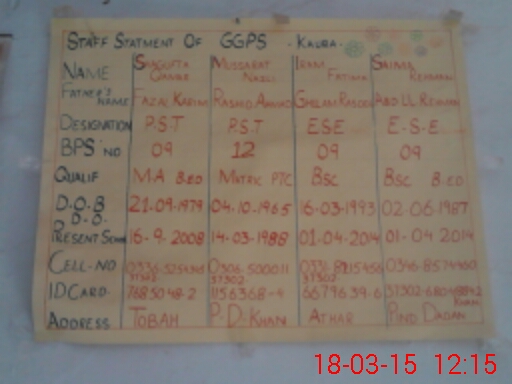 STAFF STATMENT OF GGPS - KAURA -
NAME SHAGUFTA QAMAR MUSSARAT NAZLI IRAM FATIMA SAIMA REHMAN
FATHER'S NAME FAZAL KARIM RASHID AHMAD GHULAM RASOOL ABDULL REHMAN
DESIGNATION P.S.T P.S.T ESE E.S.E
BPS NO 09 12 09 09
QUALIF M.A B.ED MATRIC PTC BSC BSC B.ED
D.O.B 21.09.1979 04.10.1965 16-03-1993 02-06-1987
D.O. PRESENT 16-9-2008 14-03-1988 01-04-2014 01-04 2014
CELL-NO 0346-8574400
ID CARD 37302 7685048-2 37302 1156368-4 37302 6679639-6
ADDRESS TOBAH P.D.KHAN ATHAR PIND DADAN KHAN
18-03-15 12:15